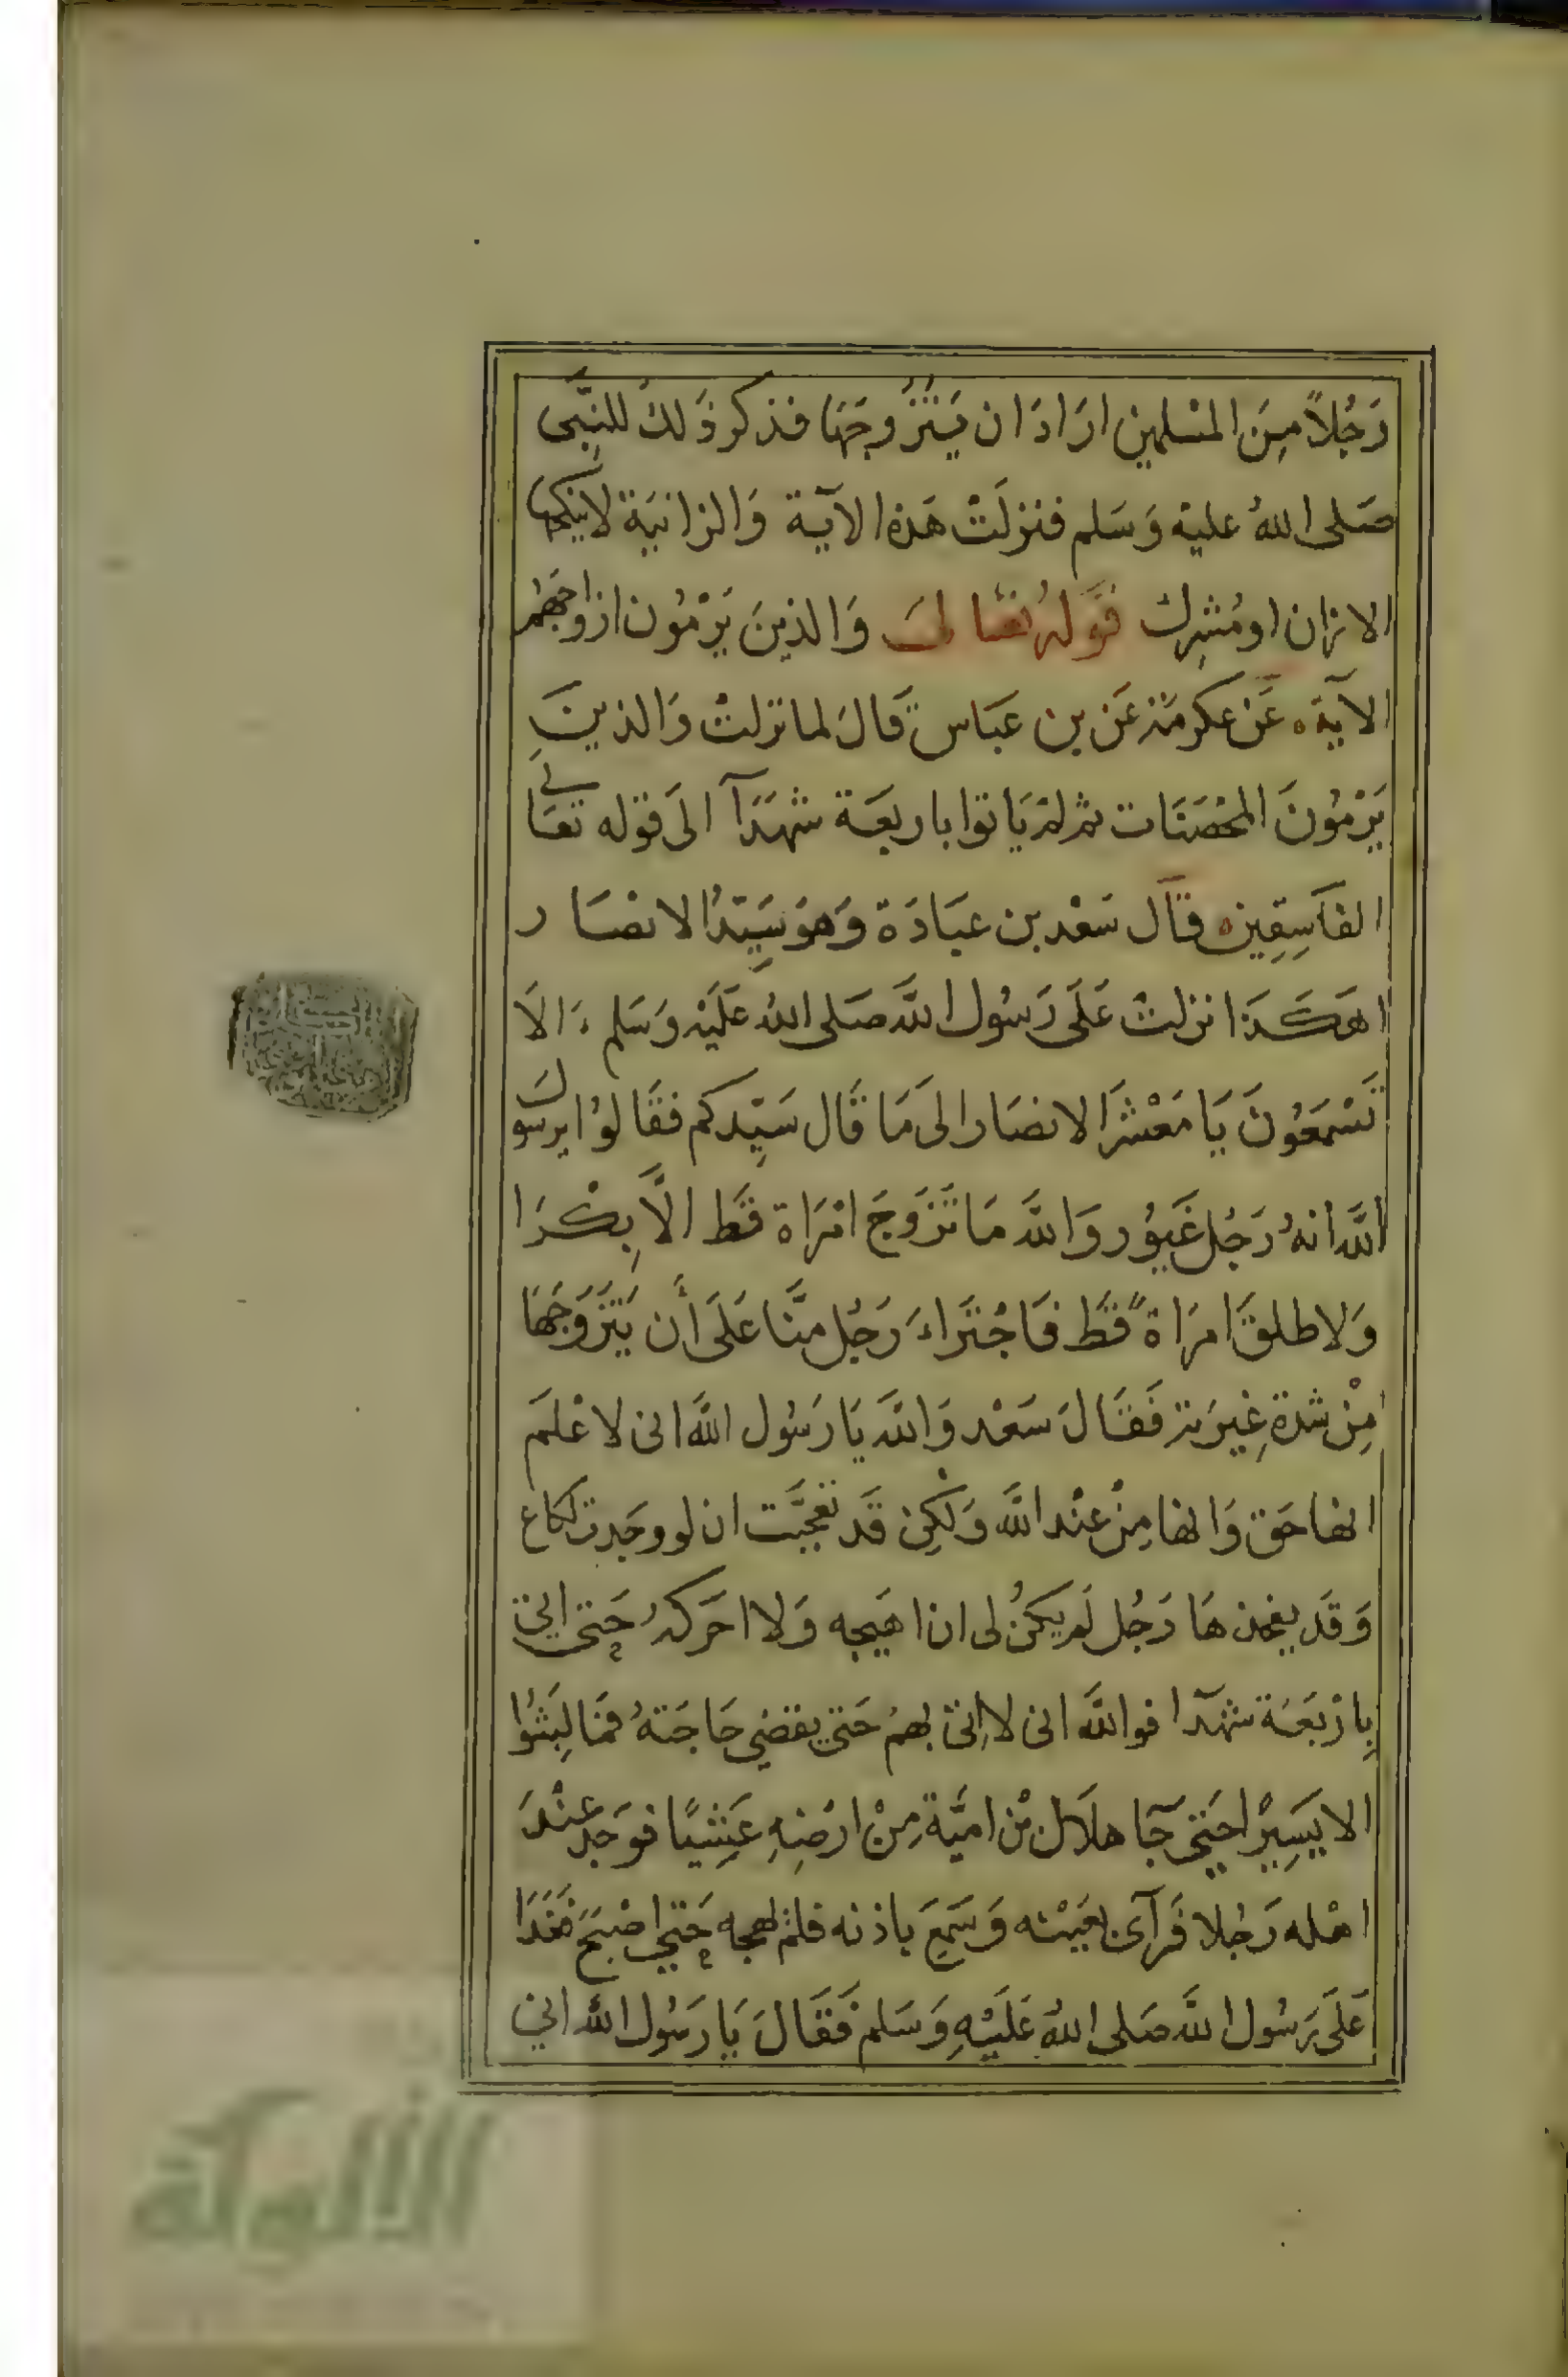 رَجُلاً مِنَ المسْلمين ارَادَ ان يَتَزُوجَهَا فذكر ذَلك للنبِّى
صَلى اللهُ عليْه وَسَلم فنزلَتْ هَذه الآية وَالزانيَة لا ينكحها
الا زان او مُشرك قوَلهُ تعَالىَ وَالذينَ يَرْمُون ازوَاجَهُم
الآيَة عَن عكرمَة عَن بن عبَاس قَالَ لما نزلتْ وَالذينَ
يَرْمُونَ المحْصَنَات ثم لمْ يَاتوا باربعَة شهَدَآ الىَ قوله تعَالى
الفَاسِقِين قال سَعْد بن عبَادَة وَهوَ سَيِّدُ الانصَار
اهَكَذَا انزلتْ عَلَى رَسُول اللَّه صَلى اللهُ عَلَيْه وَسَلم الاَ
تَسْمَعُونَ يَا مَعْشرَ الانصَار الى مَا قَال سَيِّدكم فقَالوُا يرسول
اللَّه انهُ رَجُل غَيوُر وَاللَّه مَا تَزَوَجَ امْرَاة قَط الاَّ بِكْرَا
وَلا طلقَ امرَاةً قَط فَاجْتَراءَ رَجُل منَّا عَلَى أن يَتَزَوَجَهَا
مِنْ شدة غِيرَته فَقَالَ سَعْد وَاللَّه يَا رَسُول اللَّه انى لاعْلَم
انها حَق وَانها مِنْ عنْد اللَّه وَلكِن قَد تعَجبَّت ان لو وجَدت لكاع
وَقَد يفخذهَا رَجُل لَم يكنُ لى ان اهيجه وَلا احَركهُ حَتى اتي
بِارْبَعَة شهَدآ فوالله انى لا اتى بهمُ حَتى يقضي حَاجَتهُ فمَا لبثُوا
الا يَسِيْرا حَتى جَآ هلَال بْن اميَّة مِنْ ارْضِهِ عَشِيًا فوَجد عنْدَ
اهْله رَجُلا فَرآى بعَيْنه وَسَمِعَ باذنه فلمْ يهجه حَتى اصْبَحَ فغَدَا
عَلَى رَسُول اللَّه صَلى اللهُ عَلَيْهِ وَسَلم فَقَالَ يَا رَسُول الله اني
الألوكة